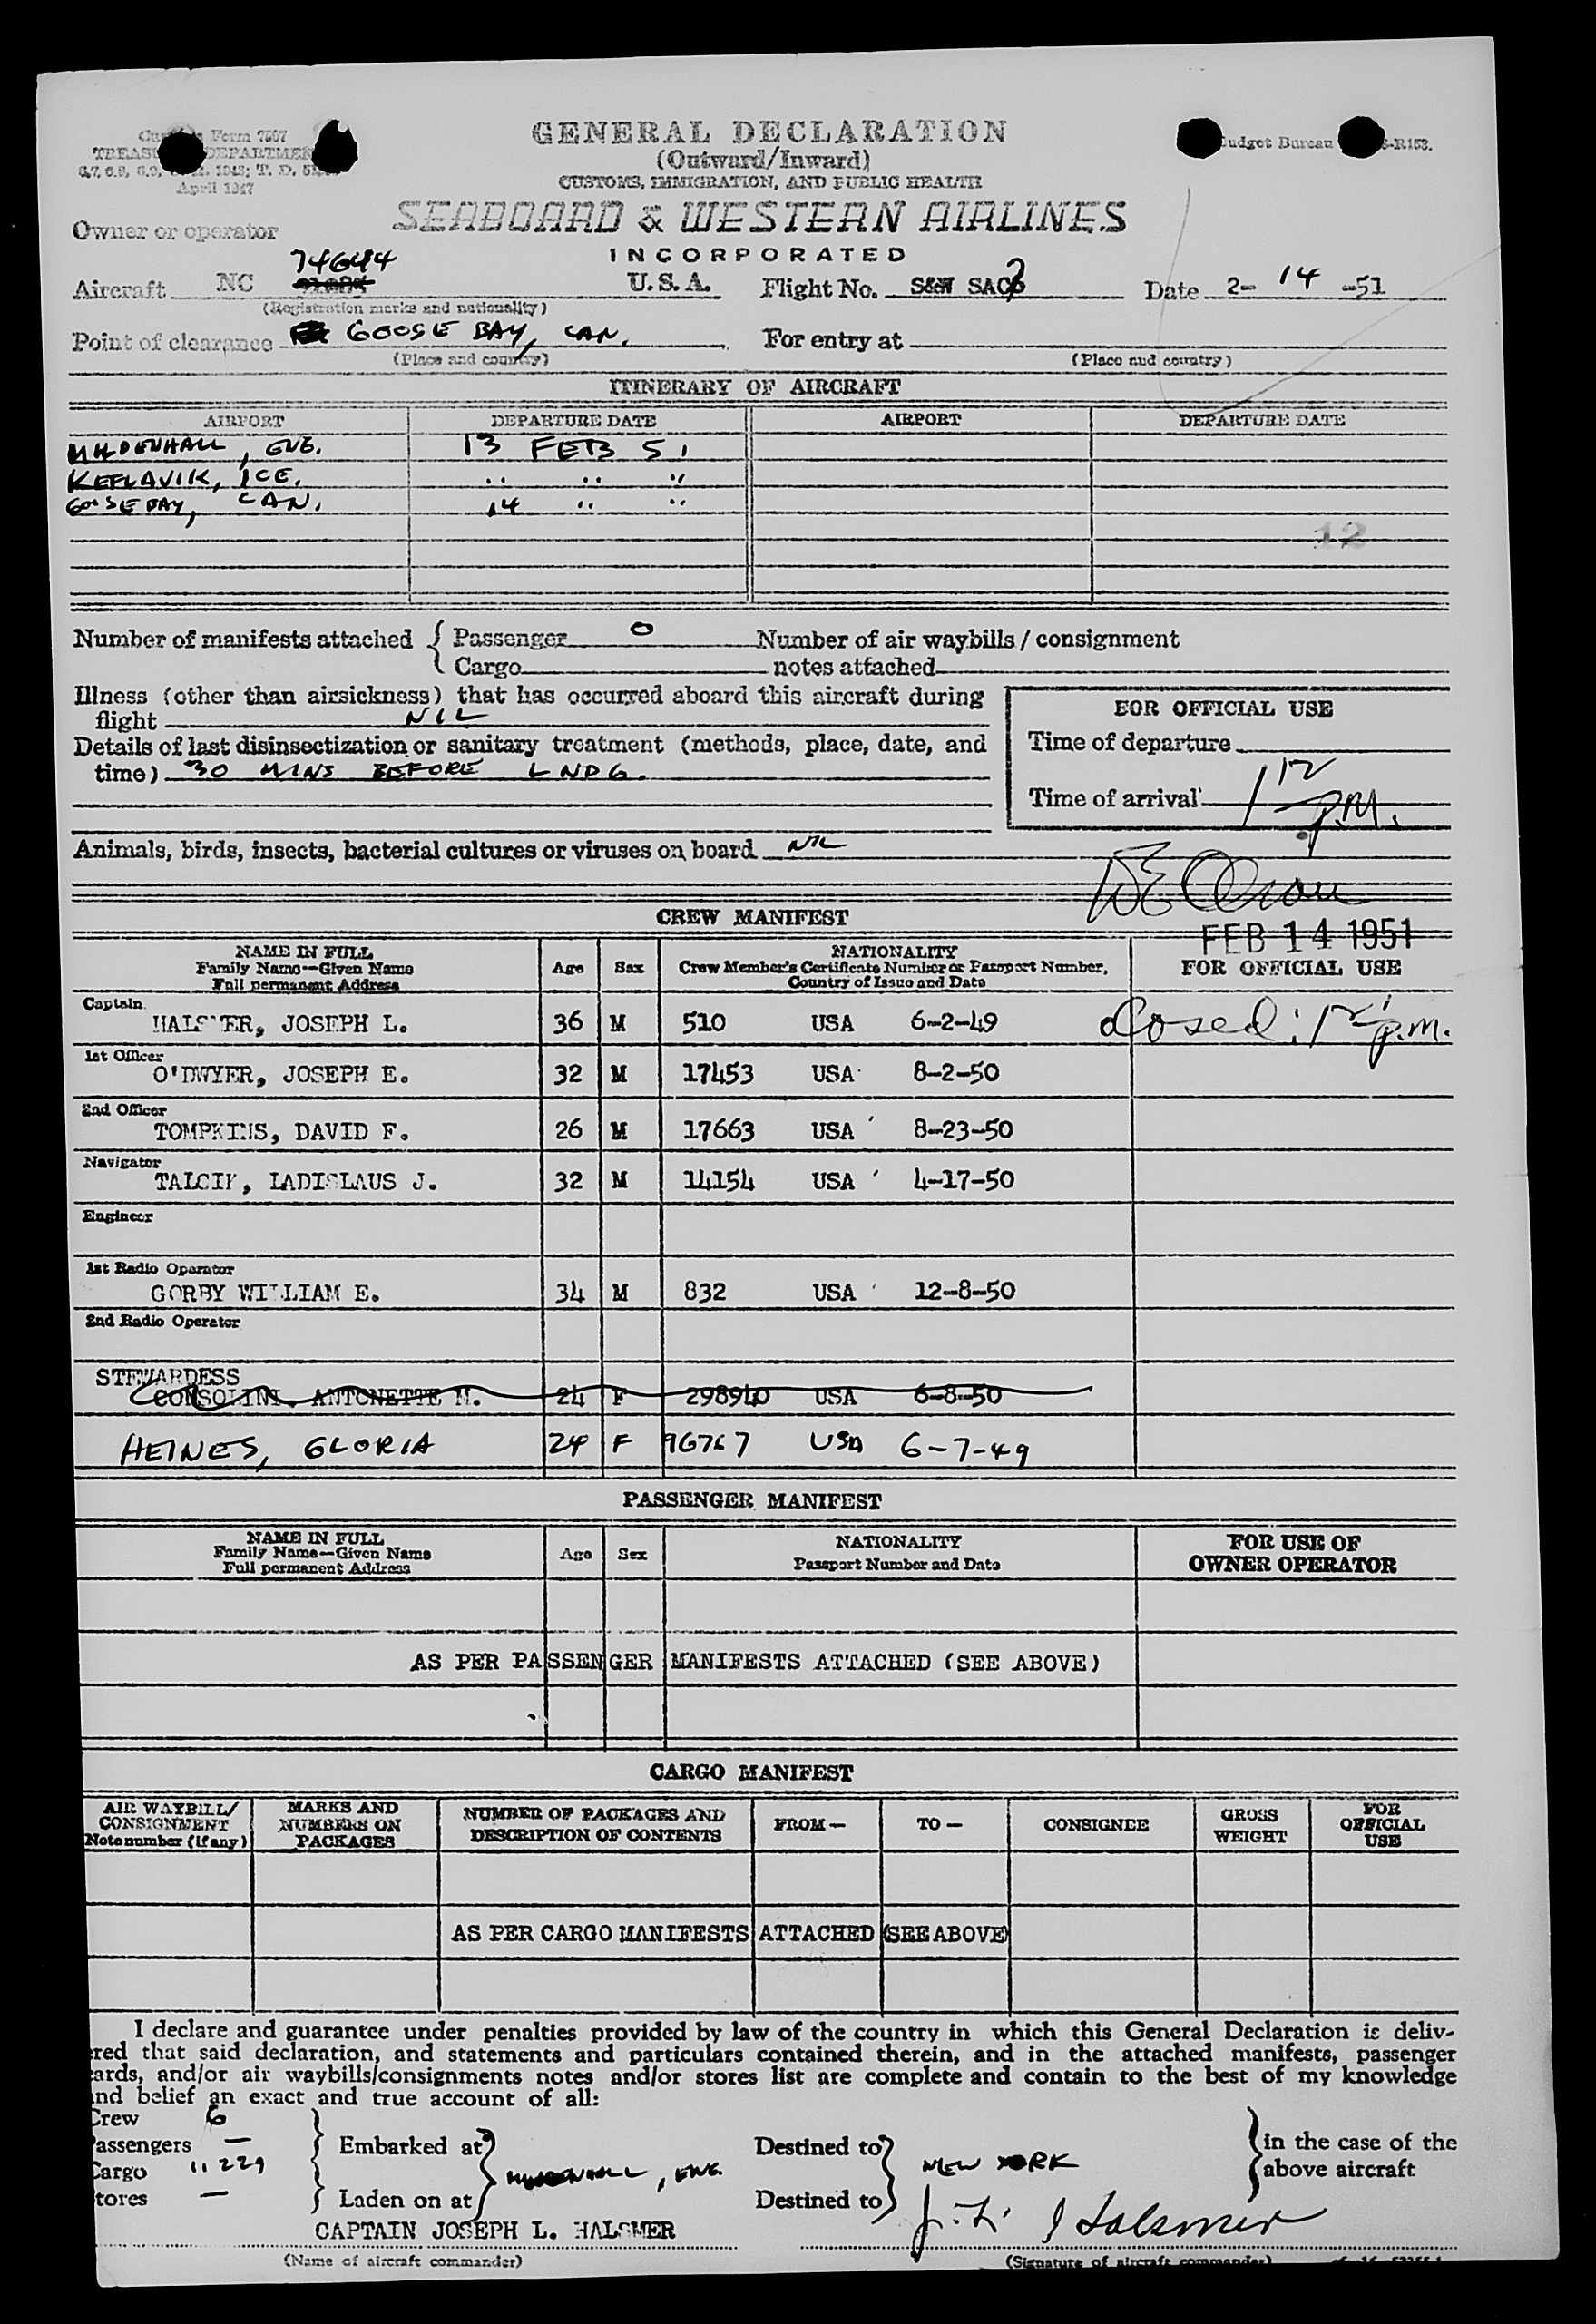 Form 7507
GENERAL DECLARATION
(Outward/Inward)
CUSTOMS, IMMIGRATION, AND PUBLIC HEALTH
April 1947
Budget Bureau
SEABOARD & WESTERN AIRLINES
INCORPORATED
Owner or operator
Aircraft NC 74644 U.S.A. Flight No. S&W SAC Date 2- 14 -51
(Registration marks and nationality)
Point of clearance GOOSE BAY, CAN. For entry at
(Place and country) (Place and country)
ITINERARY OF AIRCRAFT
AIRPORT DEPARTURE DATE AIRPORT DEPARTURE DATE
MILDENHALL, ENG. 13 FEB 51
KEFLAVIK, ICE. " " "
GOOSE BAY, CAN. 14 " "
12
Number of manifests attached { Passenger 0 Number of air waybills / consignment
Cargo notes attached
Illness (other than airsickness) that has occurred aboard this aircraft during
flight NIL
FOR OFFICIAL USE
Details of last disinsectization or sanitary treatment (methods, place, date, and
time) 30 MINS BEFORE LNDG.
Time of departure
Time of arrival 1 12 P.M.
Animals, birds, insects, bacterial cultures or viruses on board NIL
CREW MANIFEST
FEB 14 1951
NAME IN FULL
Family Name—Given Name
Full permanent Address
Age Sex
NATIONALITY
Crew Member's Certificate Number or Passport Number,
Country of Issue and Date
FOR OFFICIAL USE
Captain
HALSMER, JOSEPH L. 36 M 510 USA 6-2-49
Closed: 1 12 p.m.
1st Officer
O'DWYER, JOSEPH E. 32 M 17453 USA 8-2-50
2nd Officer
TOMPKINS, DAVID F. 26 M 17663 USA 8-23-50
Navigator
TALCIK, LADISLAUS J. 32 M 14154 USA 4-17-50
Engineer
1st Radio Operator
GORBY WILLIAM E. 34 M 832 USA 12-8-50
2nd Radio Operator
STEWARDESS
CONSOLINI, ANTONETTE M. 24 F 298940 USA 6-8-50
HEINES, GLORIA 24 F 96767 USA 6-7-49
PASSENGER MANIFEST
NAME IN FULL
Family Name—Given Name
Full permanent Address
Age Sex
NATIONALITY
Passport Number and Date
FOR USE OF
OWNER OPERATOR
AS PER PASSENGER MANIFESTS ATTACHED (SEE ABOVE)
CARGO MANIFEST
AIR WAYBILL/
CONSIGNMENT
Note number (if any)
MARKS AND
NUMBERS ON
PACKAGES
NUMBER OF PACKAGES AND
DESCRIPTION OF CONTENTS
FROM—
TO—
CONSIGNEE
GROSS
WEIGHT
FOR
OFFICIAL
USE
AS PER CARGO MANIFESTS ATTACHED (SEE ABOVE)
I declare and guarantee under penalties provided by law of the country in which this General Declaration is deliv-
red that said declaration, and statements and particulars contained therein, and in the attached manifests, passenger
ards, and/or air waybills/consignments notes and/or stores list are complete and contain to the best of my knowledge
nd belief an exact and true account of all:
Crew 6
assengers —
Cargo 11229
tores —
Embarked at
Laden on at
MILDENHALL, ENG.
Destined to
Destined to
NEW YORK
in the case of the
above aircraft
CAPTAIN JOSEPH L. HALSMER
J. L. Halsmer
(Name of aircraft commander) (Signature of aircraft commander)